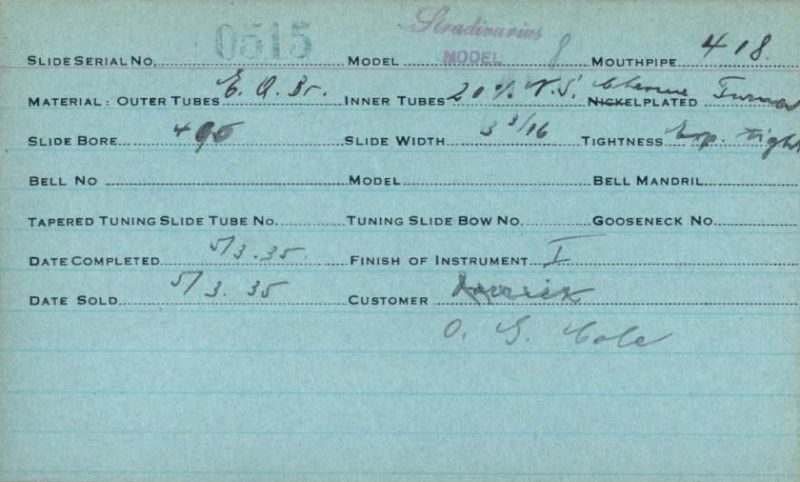 Stradivarius
SLIDE SERIAL NO. 0515 MODEL MODEL 8 MOUTHPIPE 418
MATERIAL: OUTER TUBES E. Q. Br. INNER TUBES 20% N.S. Chrome NICKELPLATED
SLIDE BORE 495 SLIDE WIDTH 3 3/16 TIGHTNESS Exp. tight
BELL NO MODEL BELL MANDRIL
TAPERED TUNING SLIDE TUBE NO. TUNING SLIDE BOW NO. GOOSENECK NO.
DATE COMPLETED 5/3.35 FINISH OF INSTRUMENT I
DATE SOLD 5/3.35 CUSTOMER
O. G. Cole